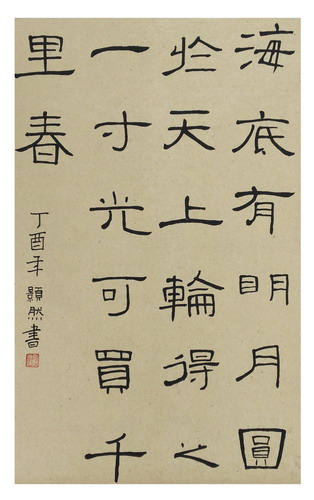 海底有明月圓
於天上輪得之
一寸光可買千
里春
丁酉年顥然書